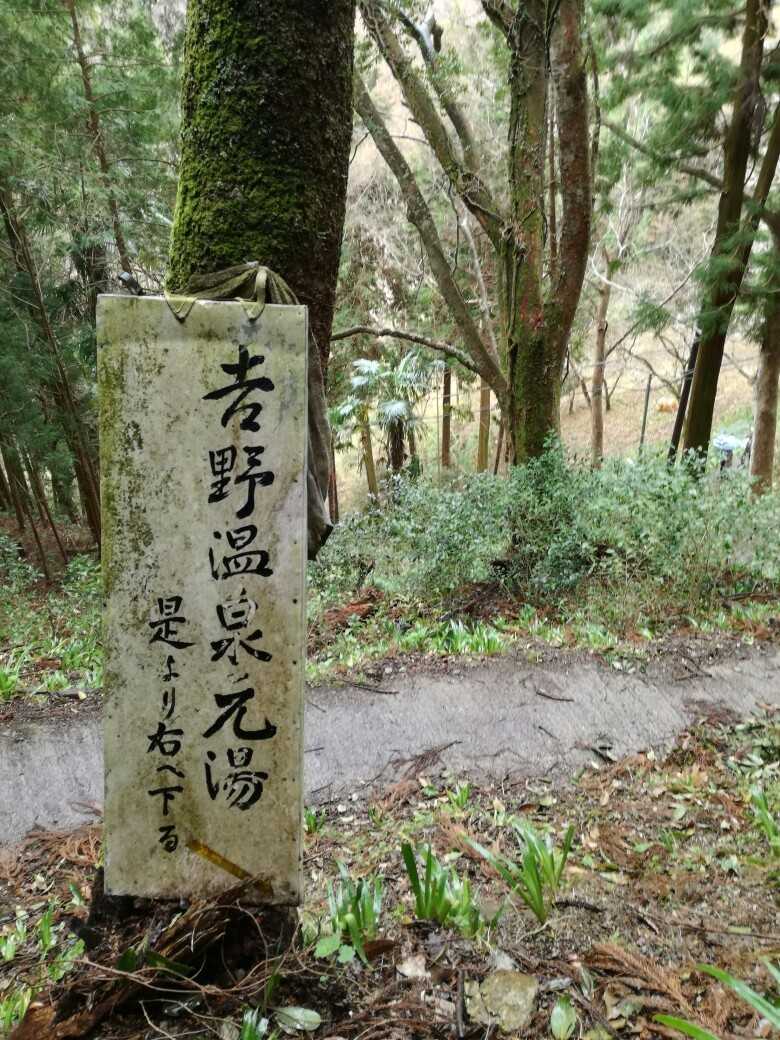 吉野温泉元湯
是より右へ下る